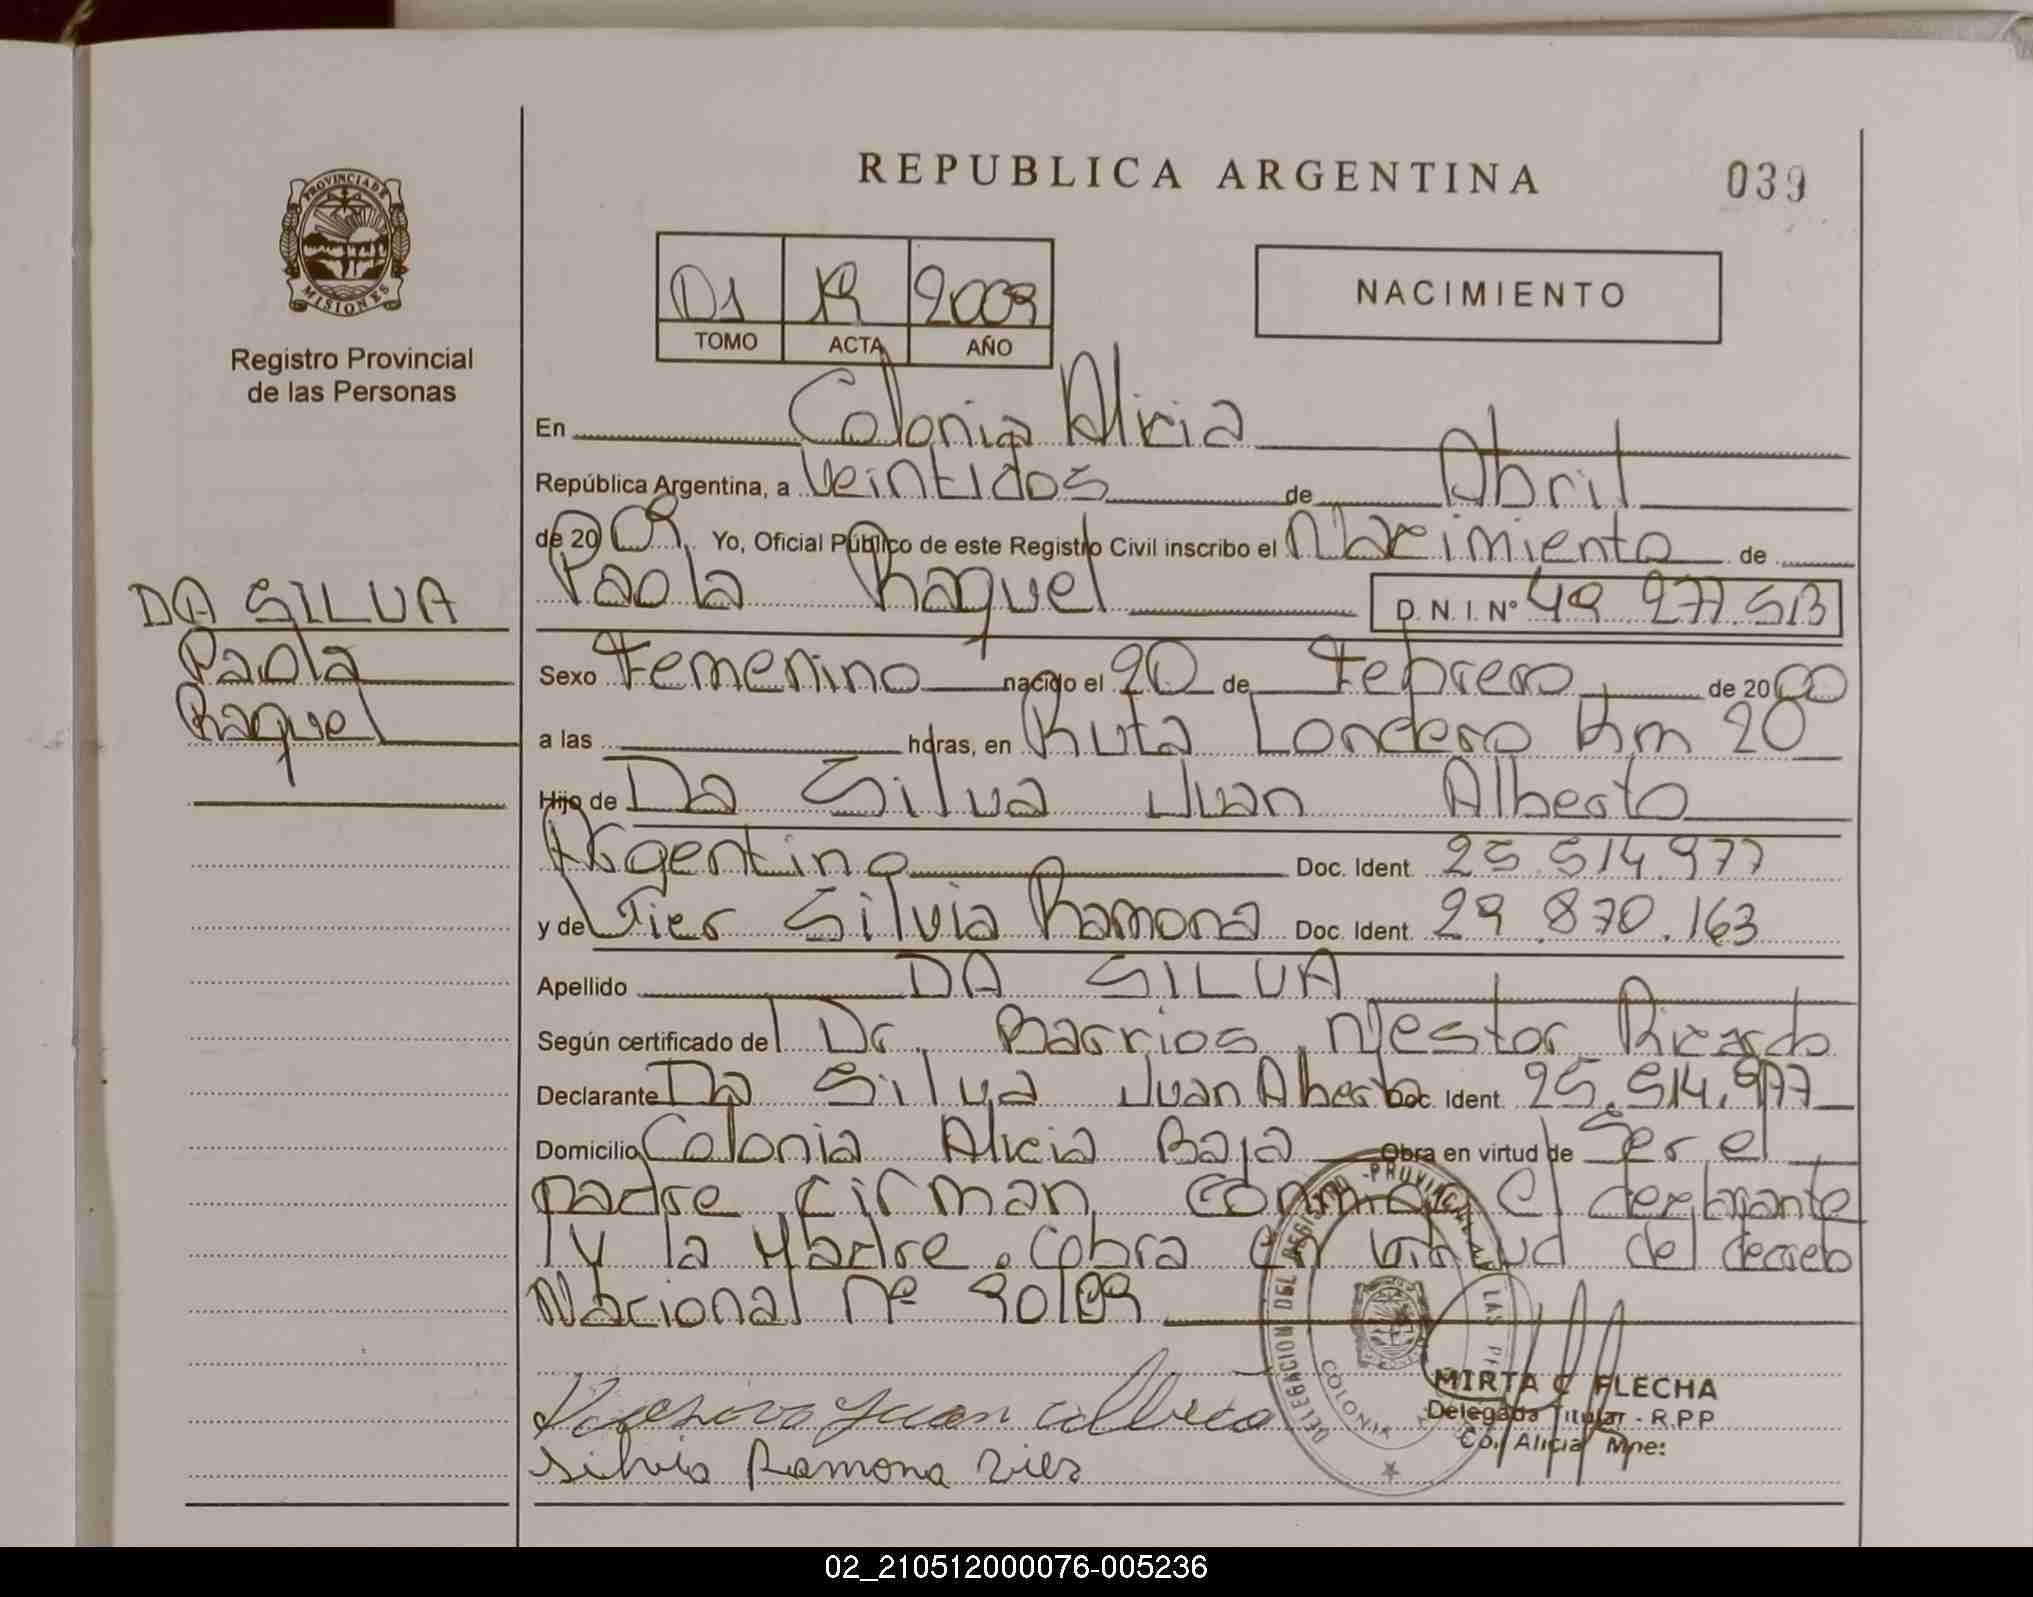 REPUBLICA ARGENTINA
039
PROVINCIA DE
MISIONES
Registro Provincial
de las Personas
D1 19 2009
TOMO ACTA AÑO
NACIMIENTO
En Colonia Alicia
República Argentina, a Veintidos de Abril
de 2009. Yo, Oficial Público de este Registro Civil inscribo el Nacimiento de
Paola Raquel D. N. I. Nº 49.277.513
DA SILVA
Paola
Raquel
Sexo Femenino nacido el 20 de Febrero de 20
a las horas, en Ruta Londero Km 20
Hijo de Da Silva Juan Alberto
Argentino Doc. Ident. 25.514.977
y de Silvia Ramona Doc. Ident. 29.870.163
Apellido DA SILVA
Según certificado del Dr. Barrios, Nestor Ricardo
Declarante Da Silva Juan Alberto Doc. Ident. 25.514.977
Domicilio Colonia Alicia Baja Obra en virtud de Ser el
padre firman conmigo el declarante
y la Madre. Cobra en virtud del decreto
Nacional nº 90/09
DELEGACION DEL REGISTRO PROVINCIAL DE LAS
COLONIA
MIRTA C FLECHA
Delegada Titular - R.P.P
Co. Alicia Mnes:
Juan Alberto
Silvia Ramona
02_210512000076-005236